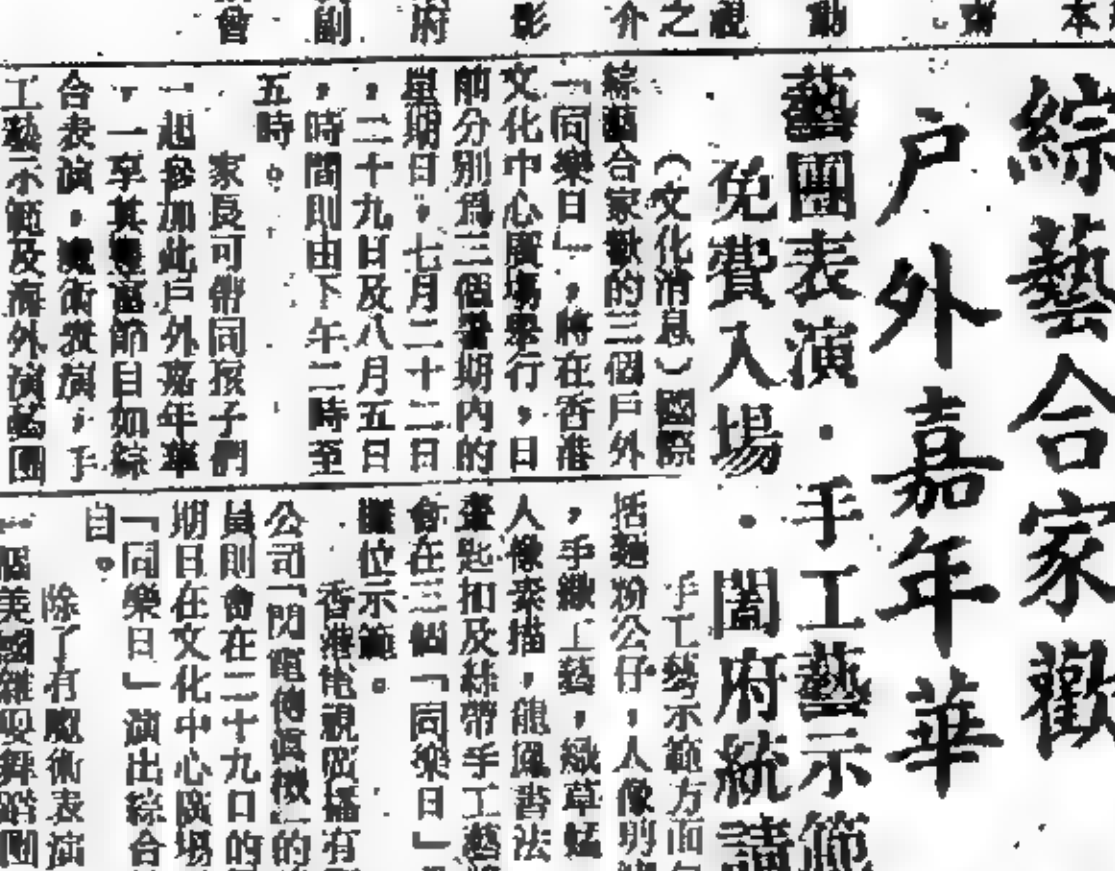 綜藝合家歡
戶外嘉年華
藝團表演·手工藝示範
免費入場·闔府統請
(文化消息)國際
綜藝合家歡的三個戶外
「同樂日」,將在香港
文化中心廣場舉行,日
期分別為三個星期內的
星期日,七月二十二日
,二十九日及八月五日
,時間則由下午二時至
五時。
家長可帶同孩子們
一起參加此戶外嘉年華
,一享其豐富節目如綜
合表演,魔術表演,手
工藝示範及海外演藝團
手工藝示範方面
括麵粉公仔,人像剪
,手織工藝,織草蜢
人像素描,龍鳳書法
畫匙扣及絲帶手工藝
會在三個「同樂日」
攤位示範。
香港電視廣播有
公司「閃電傳真機」的
員則會在二十九日的
期日在文化中心廣場
「同樂日」演出綜合
目。
除了有魔術表演
一個美國雜耍舞蹈團